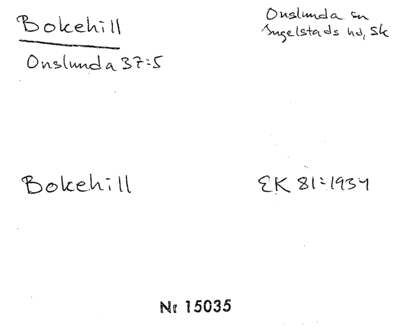 Bokehill
Onslunda sn
Ingelstads hd, Sk
Onslunda 37:5
Bokehill
EK 81:1934
Nr 15035